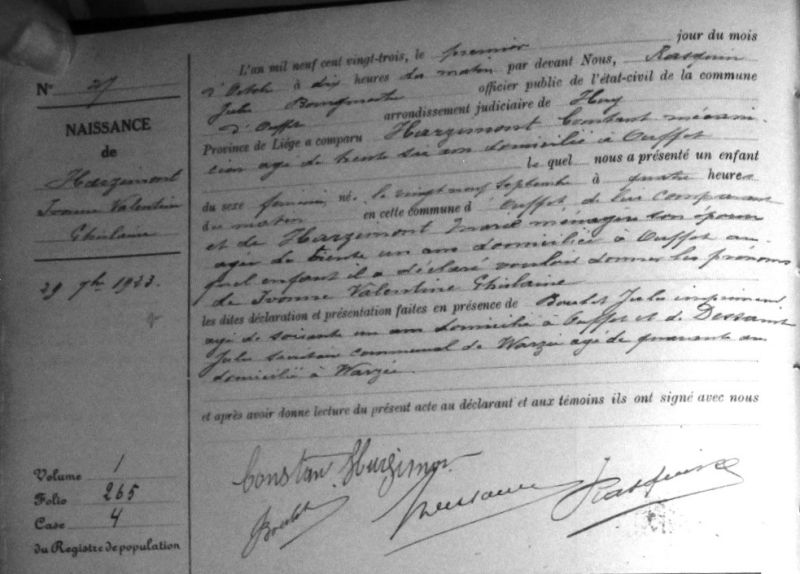 N° 27
NAISSANCE
de
Harzimont
Ivonne Valentine
Ghislaine
29 7bre 1923.
Volume 1
Folio 265
Case 4
du Registre de population
L'an mil neuf cent vingt-trois, le premier jour du mois
d'Octobre à dix heures du matin par devant Nous, Rasquin
Jules Bourgmestre officier public de l'état-civil de la commune
d'Ouffet arrondissement judiciaire de Huy
Province de Liége a comparu Harzimont Constant mécani-
cien agé de trente six ans domicilié à Ouffet
le quel nous a présenté un enfant
du sexe féminin né, le vingt neuf septembre à quatre heures
du matin en cette commune d'Ouffet, de lui comparant
et de Harzimont Marie ménagère son épouse
agée de trente un ans domiciliée à Ouffet au-
quel enfant il a déclaré vouloir donner les prénoms
de Ivonne Valentine Ghislaine
les dites déclaration et présentation faites en présence de Boulet Jules
agé de soixante un ans domicilié à Ouffet et de Dessaint
Jules secrétaire communal de Warzée agé de quarante ans
domicilié à Warzée
et après avoir donné lecture du présent acte au déclarant et aux témoins ils ont signé avec nous
Constan Hurgimon
Boulet
Rasquin